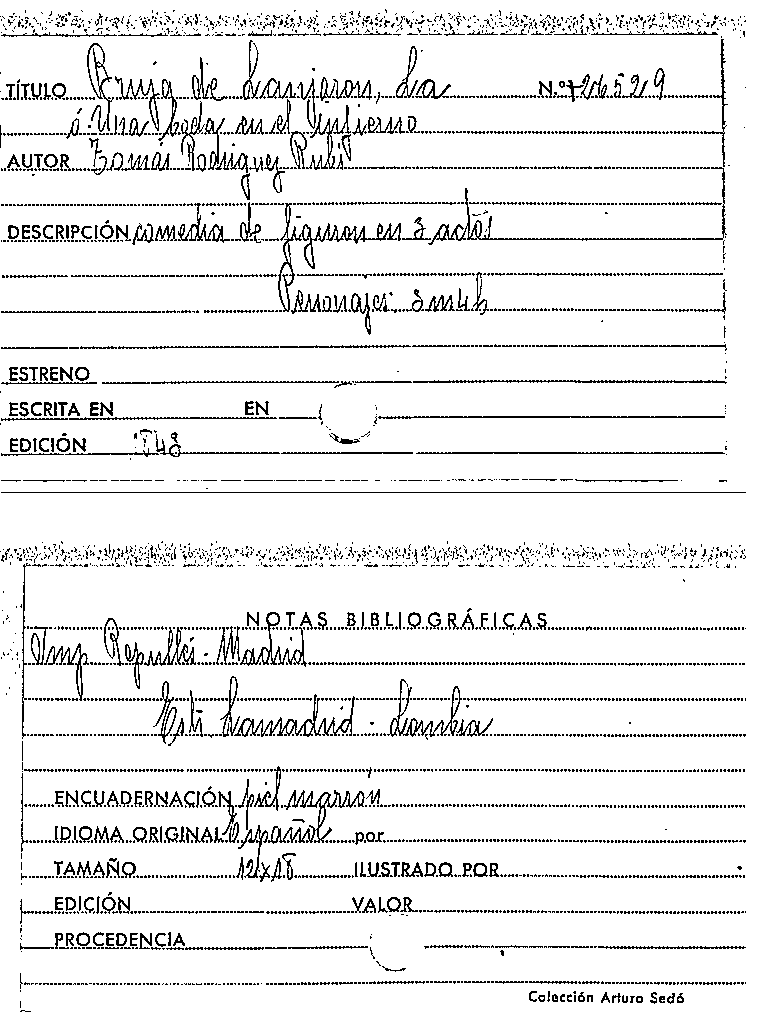 TÍTULO Bruja de Lanjaron, La N.º 26529
ó Una boda en el Infierno
AUTOR Tomás Rodriguez Rubí
DESCRIPCIÓN comedia de figuron en 3 actos
Personajes: 3 m 4 h
ESTRENO
ESCRITA EN EN
EDICIÓN 1848
NOTAS BIBLIOGRÁFICAS
Imp Repullés - Madrid
Lamadrid -
ENCUADERNACIÓN piel marrón
IDIOMA ORIGINAL Español por
TAMAÑO 12x18 ILUSTRADO POR
EDICIÓN VALOR
PROCEDENCIA
Colección Arturo Sedó